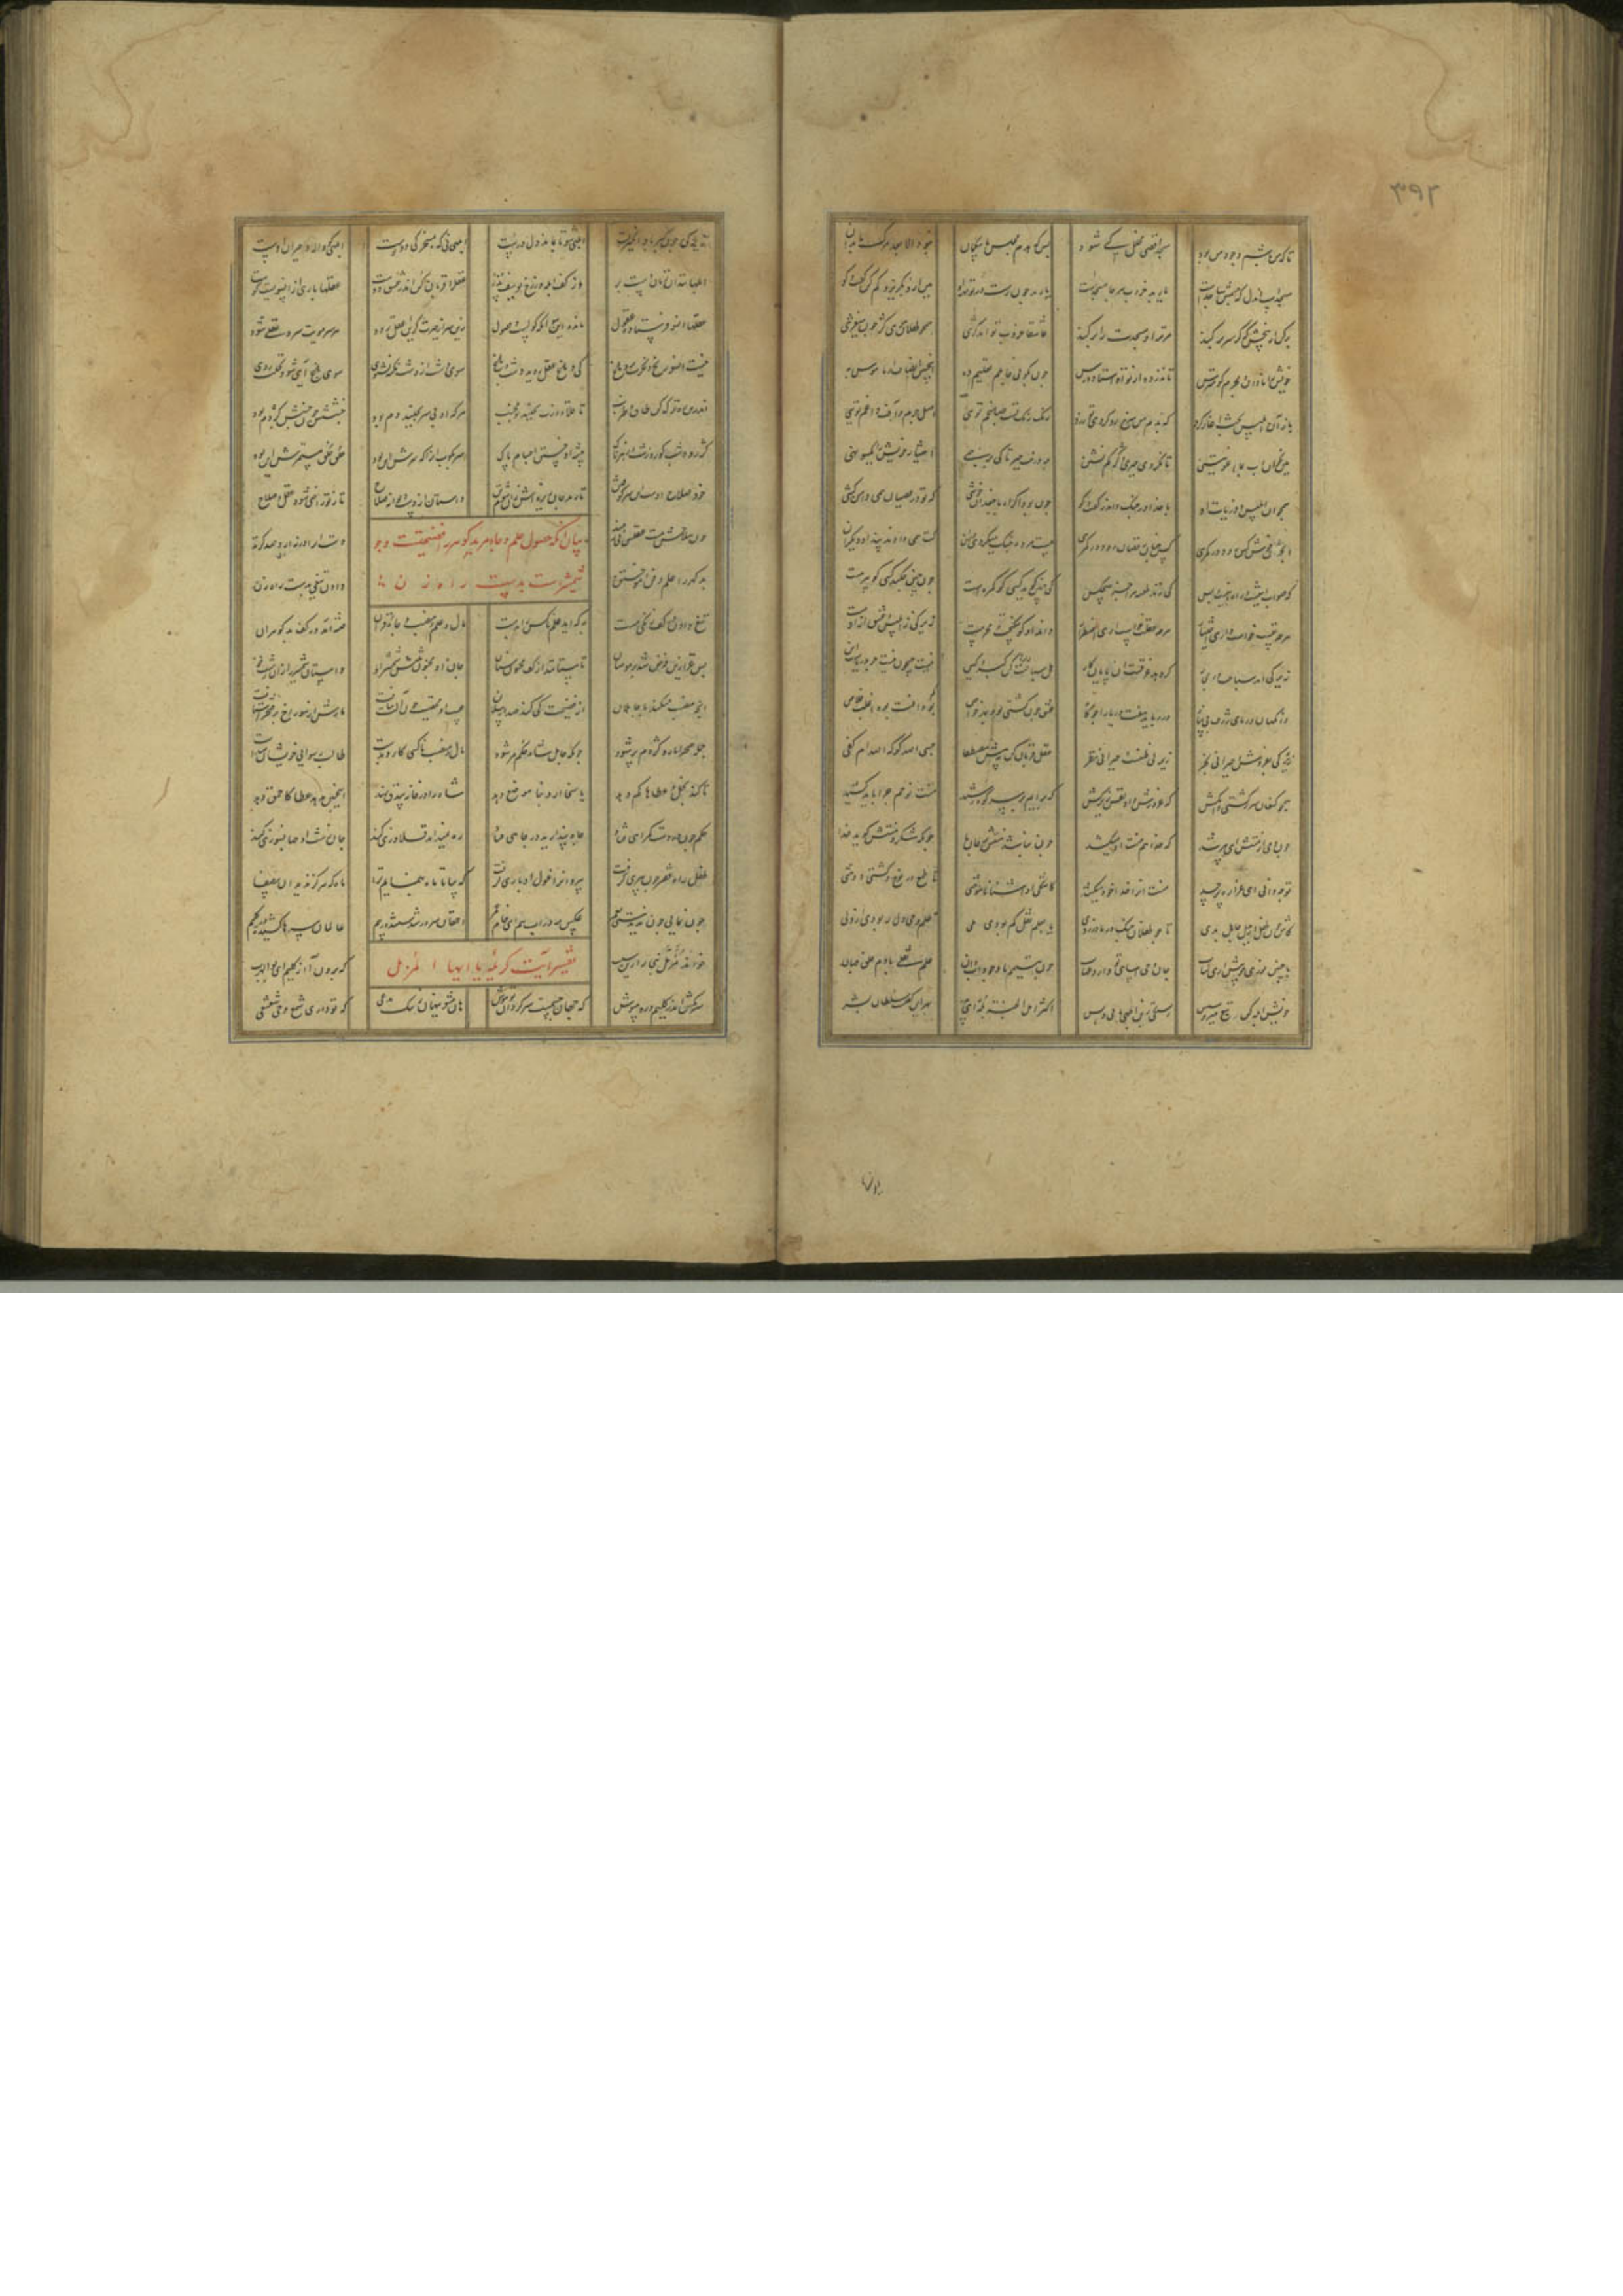 ۳۹۲
تا که من باشم وجود من بود مسجد اقصی مخلخل کی شود پس که هدم مسجد ما بی گمان نبود الا بعد مرگ ما بدان
مسجدست آن دل که جسمش ساجدست یار بد خروب هر جا مسجدست یار بد چون رست در تو مهر او هین ازو بگریز و کم کن گفت و گو
برکن از بیخش که گر سر بر کند مر ترا و مسجدت را بر کند عاشقا خروب تو آمد کژی همچو طفلان سوی کژ چون می غژی
خویش را نادان و مجرم گو مترس تا ندزدد از تو آن استاد درس چون بگویی جاهلم تعلیم ده این چنین انصاف از ناموس به
باز آن ابلیس بحث آغاز کرد که بدم من سرخ رو کردیم زرد رنگ رنگ تست صباغم توی اصل جرم و آفت و داغم توی
هین بخوان رب بما اغویتنی تا نگردی جبری و کژ کم تنی بر درخت جبر تا کی برجهی اختیار خویش را یکسو نهی
همچو آن ابلیس و ذریات او با خدا در جنگ و اندر گفت و گو چون بود اکراه با چندین خوشی که تو در عصیان همی دامن کشی
آنچنان خوش کس رود در مکرهی کس چنان رقصان دود در گمرهی بیست مرده جنگ میکردی در آن کت همی دادند پند آن دیگران
که صواب اینست و راه اینست و بس کی زند طعنه مرا جز هیچکس کی چنین گوید کسی کو مکرهست چون چنین جنگد کسی کو بی رهست
هرچه نفست خواست داری اختیار هرچه عقلت خواست آری اضطرار داند او کو نیکبخت و محرمست زیرکی ز ابلیس و عشق از آدمست
زیرکی آمد سباحت در بحار کم رهد غرقست او پایان کار هل سباحت را رها کن کبر و کین نیست جیحون نیست جو دریاست این
وانگهان دریای ژرف بی پناه در رباید هفت دریا را چو کاه عشق چون کشتی بود بهر خواص کم بود آفت بود اغلب خلاص
زیرکی بفروش و حیرانی بخر زیرکی ظنست و حیرانی نظر عقل قربان کن به پیش مصطفی حسبی الله گو که الله ام کفی
همچو کنعان سر ز کشتی وا مکش که غرورش داد نفس زیرکش که برآیم بر سر کوه مشید منت نوحم چرا باید کشید
چون رمی از منتش ای بی رشد که خدا هم منت او میکشد چون نباشد منتش بر جان ما چونکه شکر و منتش گوید خدا
تو چه دانی ای غراره پر حسد منت او را خدا خود میکشد کاشکی او آشنا ناموختی تا طمع در نوح و کشتی دوختی
کاش چون طفل از حیل جاهل بدی تا چو طفلان چنگ در مادر زدی یا به علم نقل کم بودی ملی علم وحی دل ربودی از ولی
با چنین نوری چو پیش آری کتاب جان وحی آسای تو آرد عتاب چون تیمم با وجود آب دان علم نقلی با دم قطب زمان
خویش ابله کن تبع میرو سپس رستگی زین ابلهی یابی و بس اکثر اهل الجنة البله ای پدر بهر این گفتست سلطان البشر
زیرکی چون کبر و باد انگیز تست ابلهی شو تا بماند دل درست ابلهی نی که به مسخرگی دوتوست ابلهی کو واله و حیران هوست
ابلهانند آن زنان دست بر از کف ابله وز رخ یوسف نذر عقل را قربان کن اندر عشق دوست عقلها باری از آن سویست کوست
عقلها آن سو فرستاده عقول مانده این سو آنکه گولست و فضول زین سر از حیرت گر این عقلت رود هر سر مویت سر و عقلی شود
نیست آن سو رنج فکرت بر دماغ که دماغ و عقل روید دشت و باغ سوی دشت از دشت نکته بشنوی سوی باغ آیی شود نخلت روی
اندرین ره ترک کن طاق و طرنب تا قلاوزت نجنبد تو مجنب هر که او بی سر بجنبد دم بود جنبشش چون جنبش کژدم بود
کژرو و شب کور و زشت و زهرناک پیشه او خستن اجسام پاک سر بکوب آن را که سرش این بود خلق و خوی مستمرش این بود
خود صلاح اوست آن سر کوفتن تا رهد جان ریزه اش زان شوم تن واستان از دست دیوانه سلاح تا ز تو راضی شود عدل و صلاح
چون سلاحش هست و عقلش نی ببند دست او را ورنه آرد صد گزند
بیان آنکه حصول علم و جاه مر بدگوهر را فضیحت اوست و چو
شمشیرست بدست راه زن
بدگهر را علم و فن آموختن دادن تیغی بدست راه زن
تیغ دادن در کف زنگی مست به که آید علم ناکس را بدست مال و علم و منصب و جاه و قران فتنه آمد در کف بدگوهران
پس غزا زین فرض شد بر مومنان تا ستانند از کف مجنون سنان جان او مجنون تنش شمشیر او واستان شمشیر را زان زشت خو
آنچه منصب میکند با جاهلان از فضیحت کی کند صد ارسلان عیب او مخفیست چون آلت بیافت مارش از سوراخ بر صحرا شتافت
جمله صحرا مار و کژدم پر شود چونکه جاهل شاه حکم مر شود مال و منصب ناکسی کارد بدست طالب رسوایی خویش او شدست
تا کند بخل و عطاها کم دهد یا سخا آرد و نا موضع نهد شاه را در خانه بیذق نهد اینچنین باشد عطا کاحمق دهد
حکم چون در دست گمراهی فتاد جاه پندارید در چاهی فتاد ره نمیداند قلاوزی کند جان زشت او جهانسوزی کند
طفل راه فقر چون پیری گرفت پی روان را غول ادباری گرفت که بیا تا ماه بنمایم ترا ماه را هرگز ندید آن بی صفا
چون نمایی چون ندیدستی به عمر عکس مه در آب هم ای خام غمر احمقان سرور شدستند و ز بیم عاقلان سرها کشیده در گلیم
تفسیر آیت کریمه یا ایها المزمل
خواند مزمل نبی را زین سبب که برون آ از گلیم ای بوالهرب
سر مکش اندر گلیم و رو مپوش که جهان جسمیست سرگردان تو هوش هان مشو پنهان ز ننگ مدعی که تو داری شمع وحی شعشعی